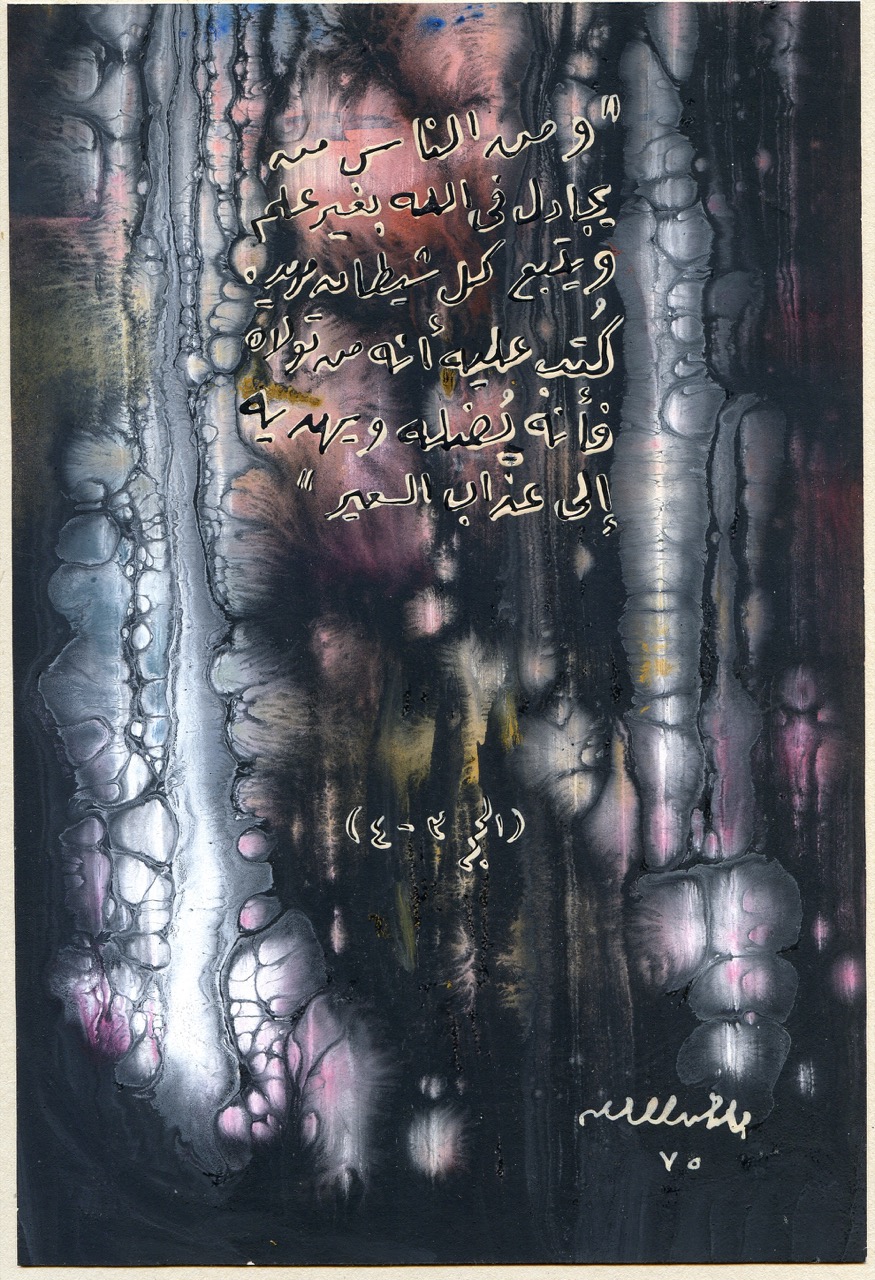 "ومن الناس من
يجادل في الله بغير علم
ويتبع كل شيطان مريد.
كُتب عليه أنه من تولاه
فأنه يُضله ويهديه
إلى عذاب السعير"
(الحج ٣-٤)
٧٥